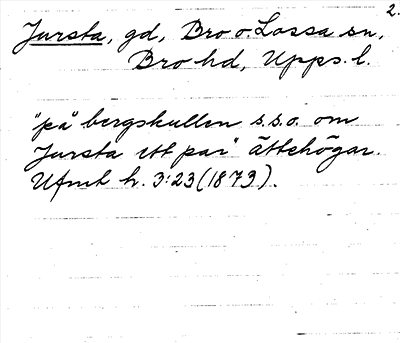 2.
Jursta, gd, Bro o. Lossa sn,
Bro hd, Upps. l.
"på bergskullen s.s.o. om
Jursta ett par" ättehögar.
Ufmt h. 3:23 (1873).